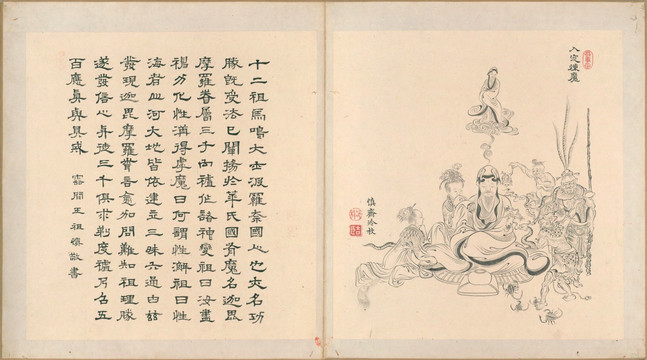 入定降魔
慎齋冷枚
十二祖馬鳴大士波羅奈國人也亦名功
勝既受法已闡揚於華氏國有魔名迦毘
摩羅眷屬三千種作諸神變祖曰汝盡
神力化性海得乎魔曰何謂性海祖曰性
海者山河大地皆依建立三昧六通由茲
發現迦毘摩羅加問難知祖理勝
遂發信心與徒三千俱求剃度祖乃召五
百應真與具戒
雲間王祖慎敬書